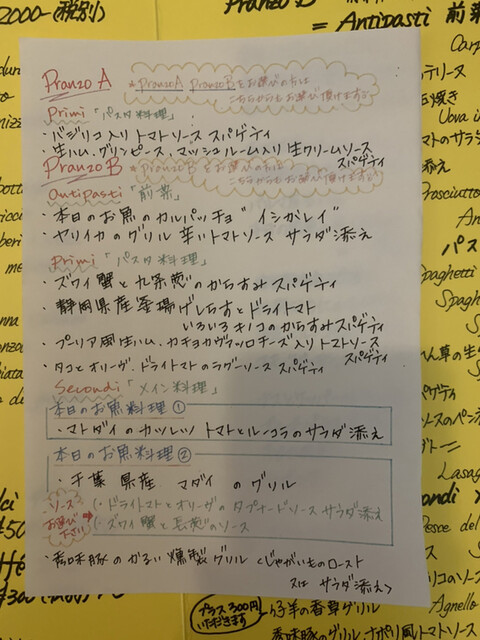 2000-(税別)
Pranzo B
= Antipasti 前菜
Pranzo A
*PranzoA PranzoBをお選びの方は
こちらからもお選び頂けます
Primi「パスタ料理」
・バジリコ入りトマトソース スパゲティ
・生ハム、グリンピース、マッシュルーム入り 生クリームソース
スパゲティ
Pranzo B
*PranzoBをお選びの方は
こちらからもお選び頂けます
antipasti「前菜」
・本日のお魚のカルパッチョ"イシガレイ"
・ヤリイカのグリル 辛いトマトソース サラダ添え
Primi「パスタ料理」
・ズワイ蟹と九条葱のからすみスパゲティ
・静岡県産釜揚げしらすとドライトマト
いろいろキノコのからすみスパゲティ
・プーリア風生ハム、カチョカヴァッロチーズ入りトマトソース
スパゲティ
・タコとオリーブ、ドライトマトのラグーソース スパゲティ
Secondi「メイン料理」
本日のお魚料理①
・マトダイのカツレツ トマトとルーコラのサラダ添え
本日のお魚料理②
・千葉県産 マダイ のグリル
ソース
お選び
下さい
・ドライトマトとオリーブのタプナードソース サラダ添え
・ズワイ蟹と長葱のソース
・香味豚のかるい燻製グリル <じゃがいものロースト
又は サラダ添え>
プラス300円
いただきます
仔羊の香草グリル
香味豚のグリル ナポリ風トマトソース
パスタ
Spaghetti
Prosciutto
Uova in
Agnello